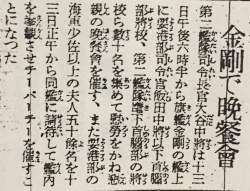 金剛で晩餐會
第二艦隊司令長官大谷中將は十三
日午後六時半から旗艦金剛の艦上
に要港部司令官飯田中將以下首腦
部將校、第二艦隊首腦部將
校ら數十名を集めて慰勞をかね懇
親の晩餐會を催す、また要港部の
海軍少佐以上の夫人五十餘名を十
三日正午から同艦に請待して艦内
を參觀させチーパーチーを催すこ
とになつた